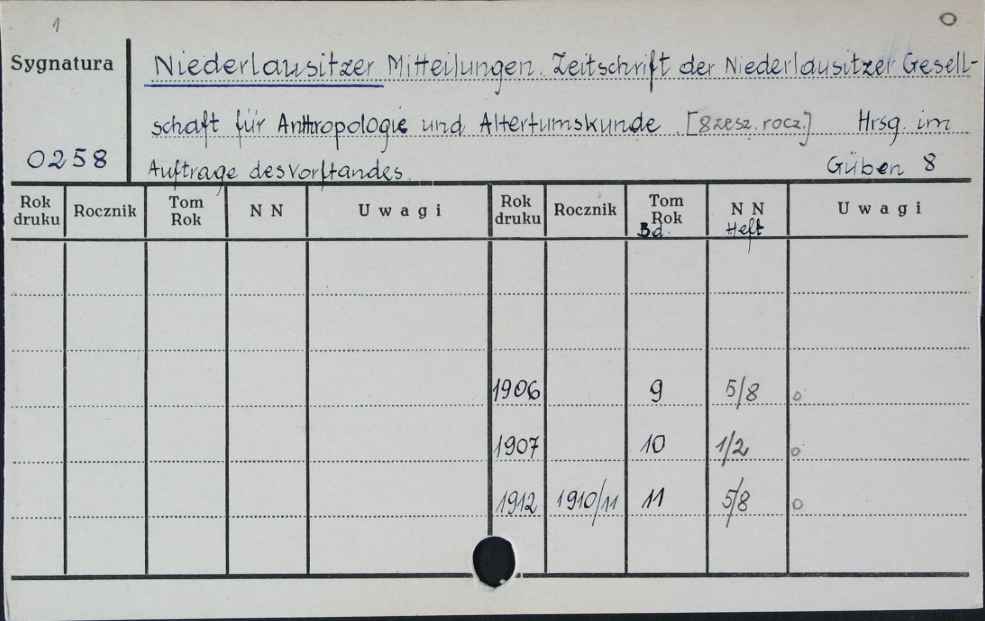 1
O
Sygnatura
Niederlausitzer Mitteilungen. Zeitschrift der Niederlausitzer Gesell-
schaft für Anthropologie und Altertumskunde. [8 zesz. rocz.] Hrsg. im
0258
Auftrage des Vorstandes. Guben 8
Rok druku Rocznik Tom Rok N N Uwagi Rok druku Rocznik Tom Rok Bd. N N Heft Uwagi
1906 9 5/8 o
1907 10 1/2 o
1912 1910/11 11 5/8 o